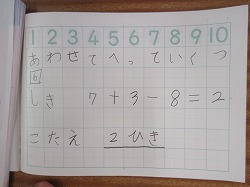 1 2 3 4 5 6 7 8 9 10
あわせてへっていくつ
6
しき 7+3-8=2
こたえ 2ひき